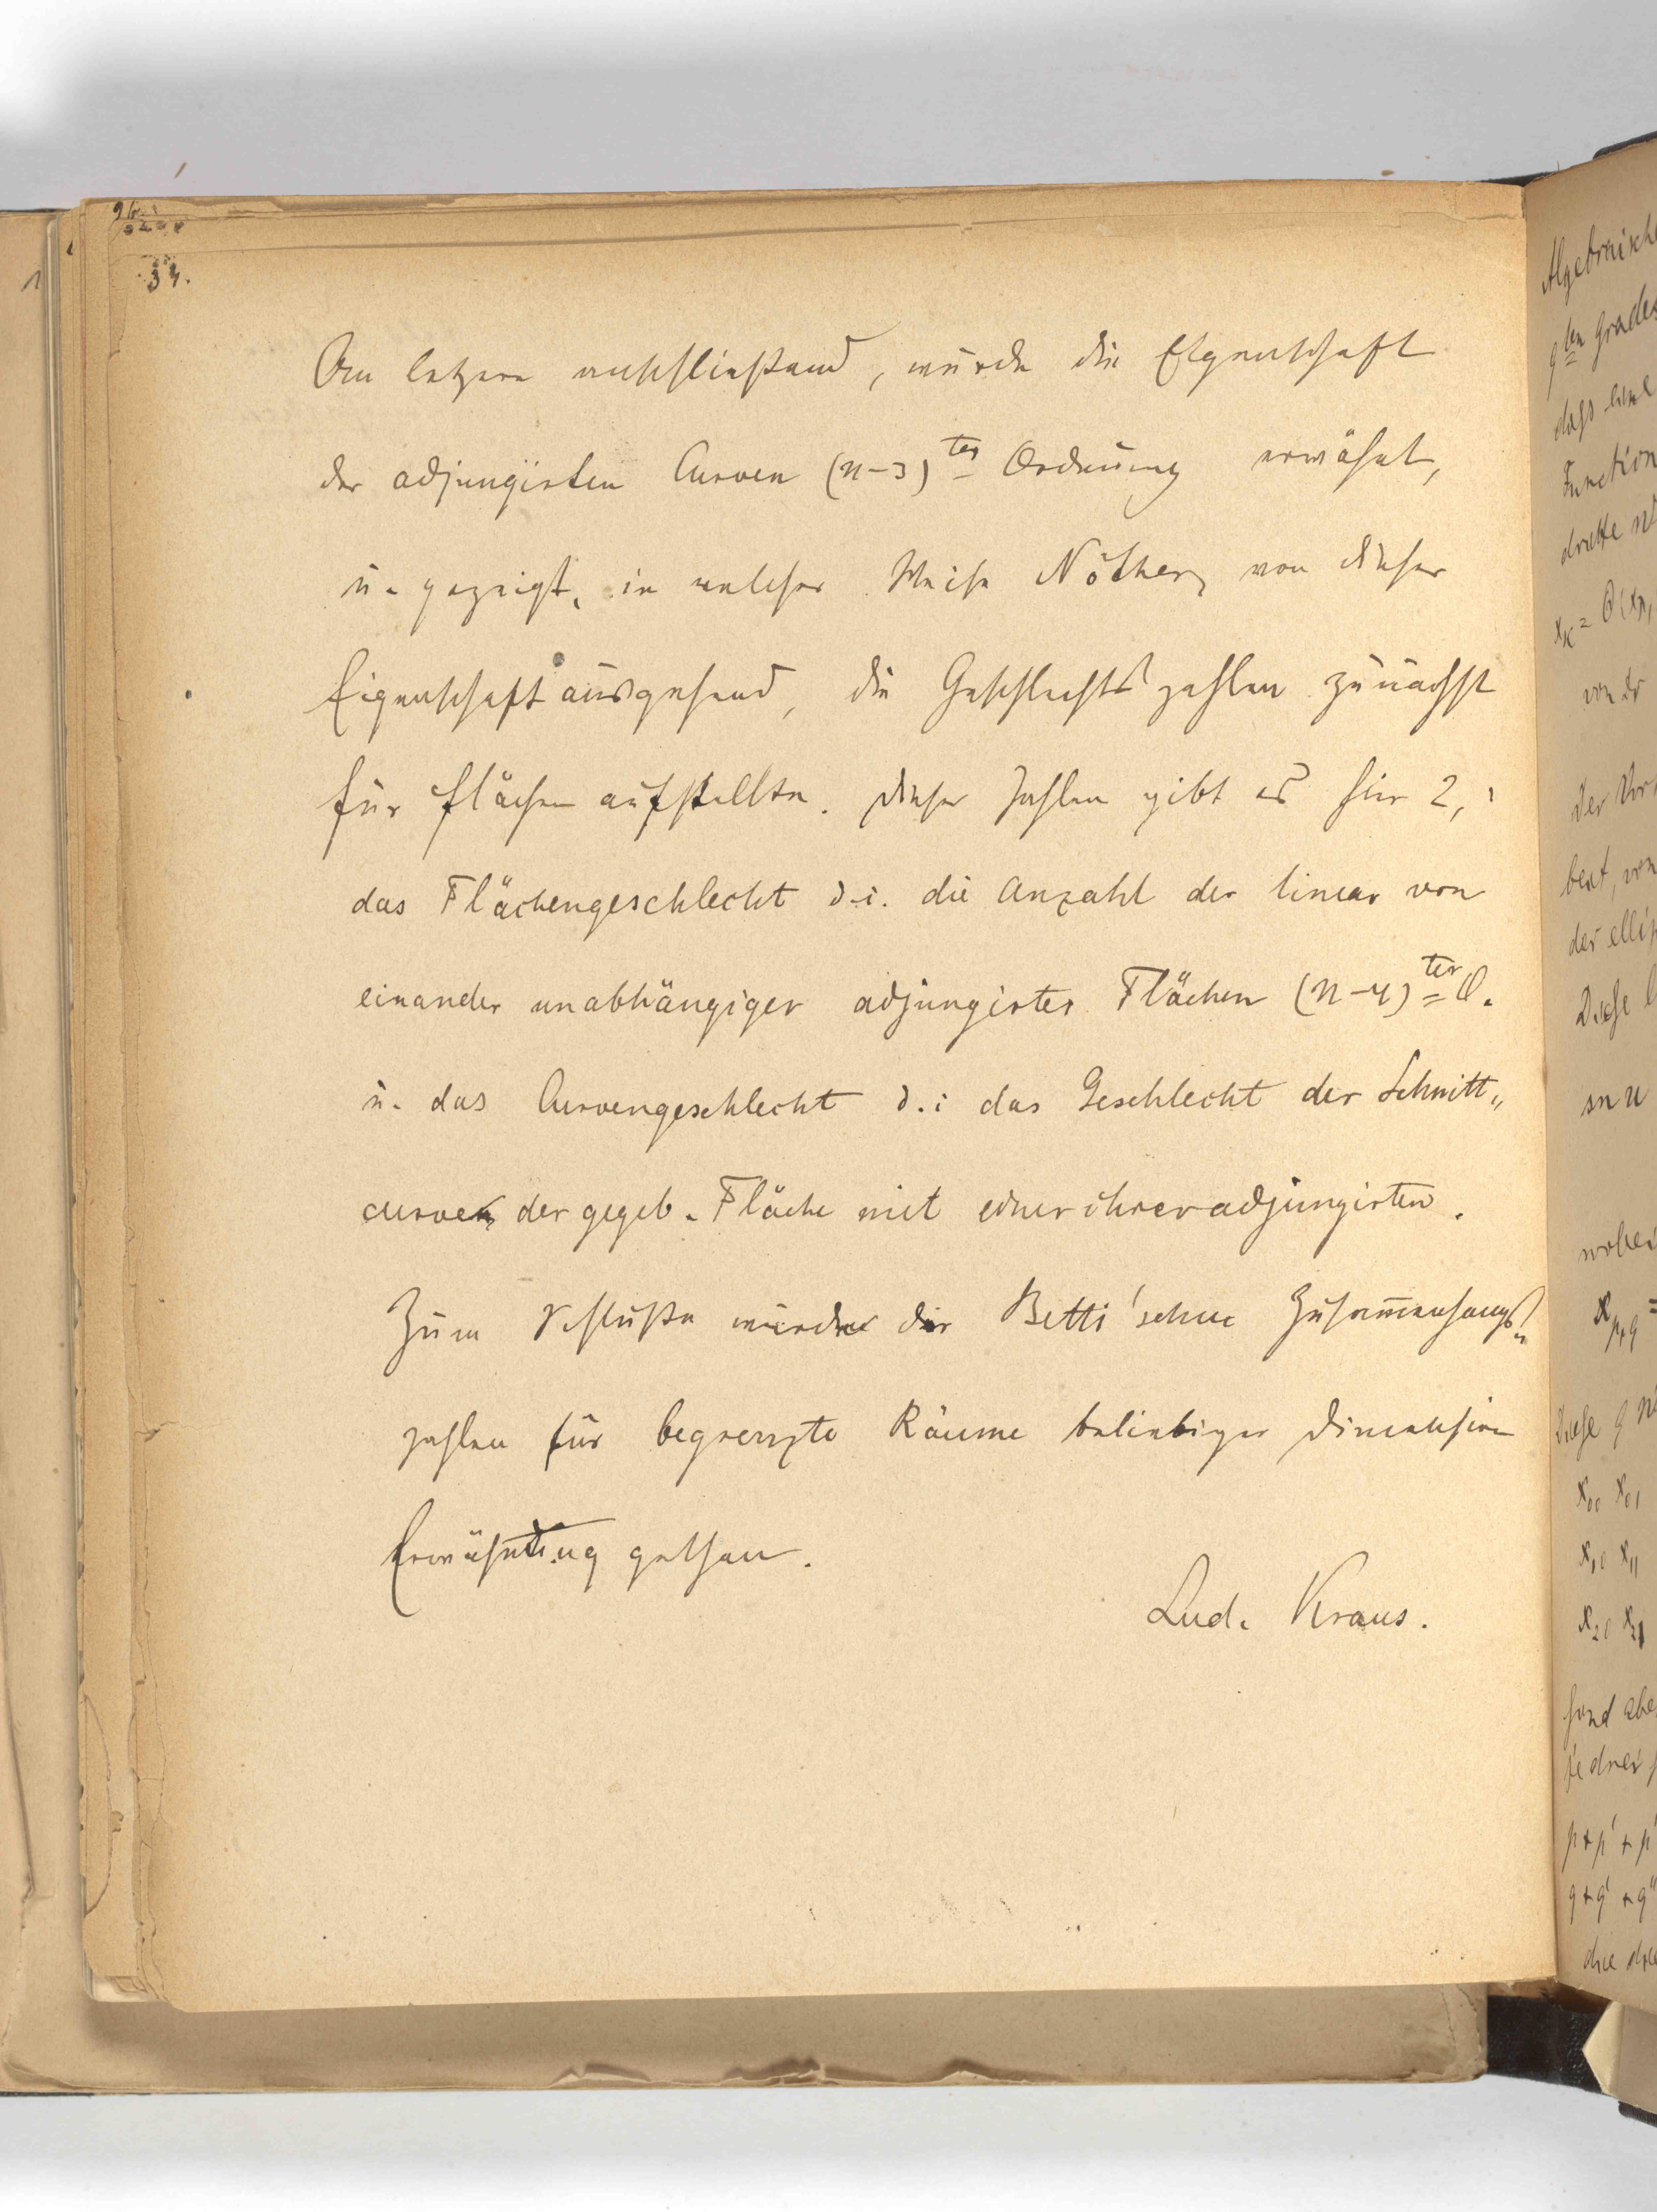 34.
An letzere anschließend, wurde die Eigenschaft
der adjungirten Curven (n-3)ter Ordnung erwähnt,
u. gezeigt, in welcher Weise Nöther, von dieser
Eigenschaft ausgehend, die Geschlechtszahlen zunächst
für Flächen aufstellte. Dieser Zahlen gibt es hier 2,
das Flächengeschlecht d.i. die Anzahl der linear von
einander unabhängiger adjungirter Flächen (n-4)ter O.
u. das Curvengeschlecht d.i das Geschlecht der Schnitt„
curven der gegeb. Fläche mit einer ihrer adjungirten.
Zum Schluße wurde der Betti'schen Zusam̅enhangs„
zahlen für begrenzte Räume beliebiger Dimension
Erwähnung gethan.
Lud. Kraus.
Algebraische
qten Grades
Function
von der
der ellip
Diese
sn u
wobei
x00 x01
x10 x11
x20 x21